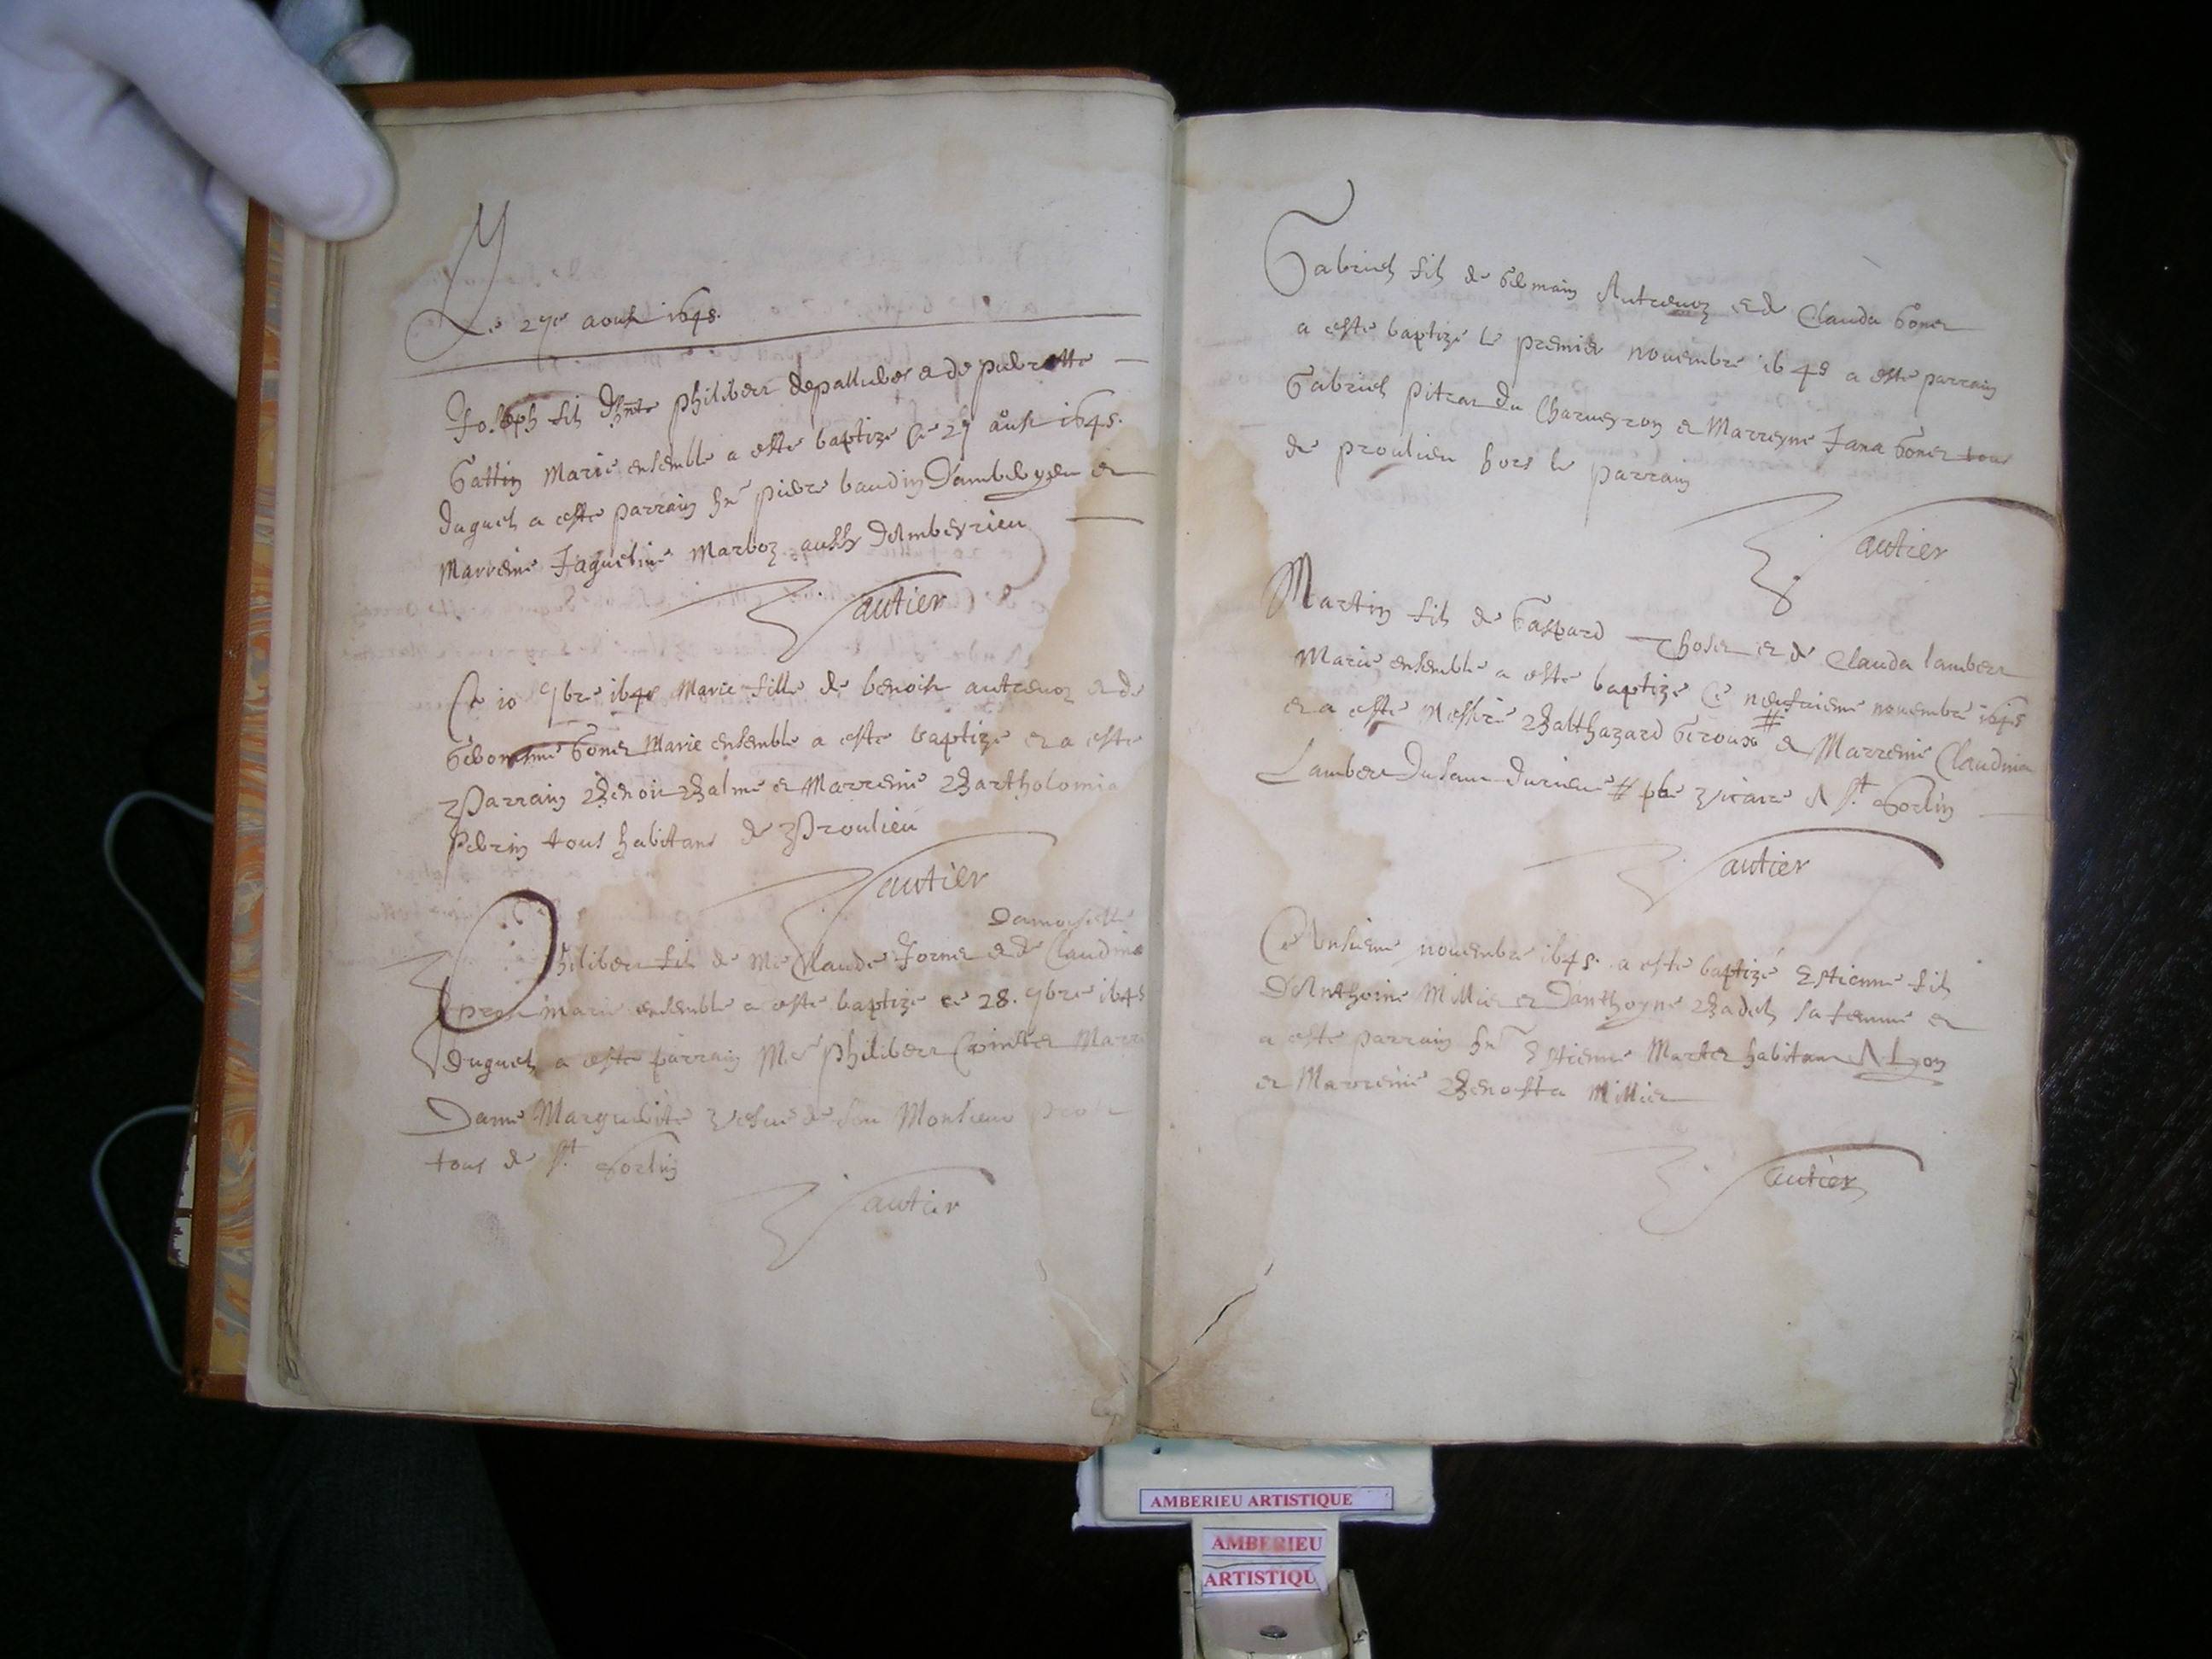 Le 27e aoust 1645.
Joseph fils philibert depallubes et de pierrette
Gattin Marie ensemble a este baptizé Ce 27 aust 1645.
duquel a este parrain hr̃e pierre baudin D'amberyeu et
Marreine Jaqueline Marboz aussy d'Ambeyrieu
Gautier
Ce 10 9bre 1645 Marie fille de benoist autrenoz et de
Goner Marie ensemble a este baptize et a este
Parrain Benoit Balme et Marreine Bartholomia
perrin tous habitans de Proulieu
Gautier
Damoiselle
Philibert fils de Me Claude Fornet et de Claudine
marie ensemble a este baptize ce 28. 9bre 1645
duquel a este parrain Me philibert Marre
Dame Marguerite vesue de feu Monsieur
tous de St. Sorlin
Gautier
Gabriel fils de Germain Autrenoz et de Clauda Goner
a este baptizé le premier novembre 1645 a este parrain
Gabriel pitrat du Charveyron et Marreyne Jana Goner tous
de proulieu hors le parrain
Gautier
Martin fils de Gaspard Thoset et de Clauda lambert
Marie ensemble a este baptize Ce neufvieme novembre 1645
et a esté Messire Balthazard Giroux # et Marreine Claudina
Lambert # pbre vicaire A St. Sorlin
Gautier
Ce Unsieme novembre 1645. a este baptizé Estienne fils
D'Anthoine Millier et D'anthoyne Badel sa femme et
a este parrain hr̃e Estienne Marter habitant A Lyon
et Marreine Benoita Millier
Gautier
AMBERIEU ARTISTIQUE
AMBERIEU
ARTISTIQU